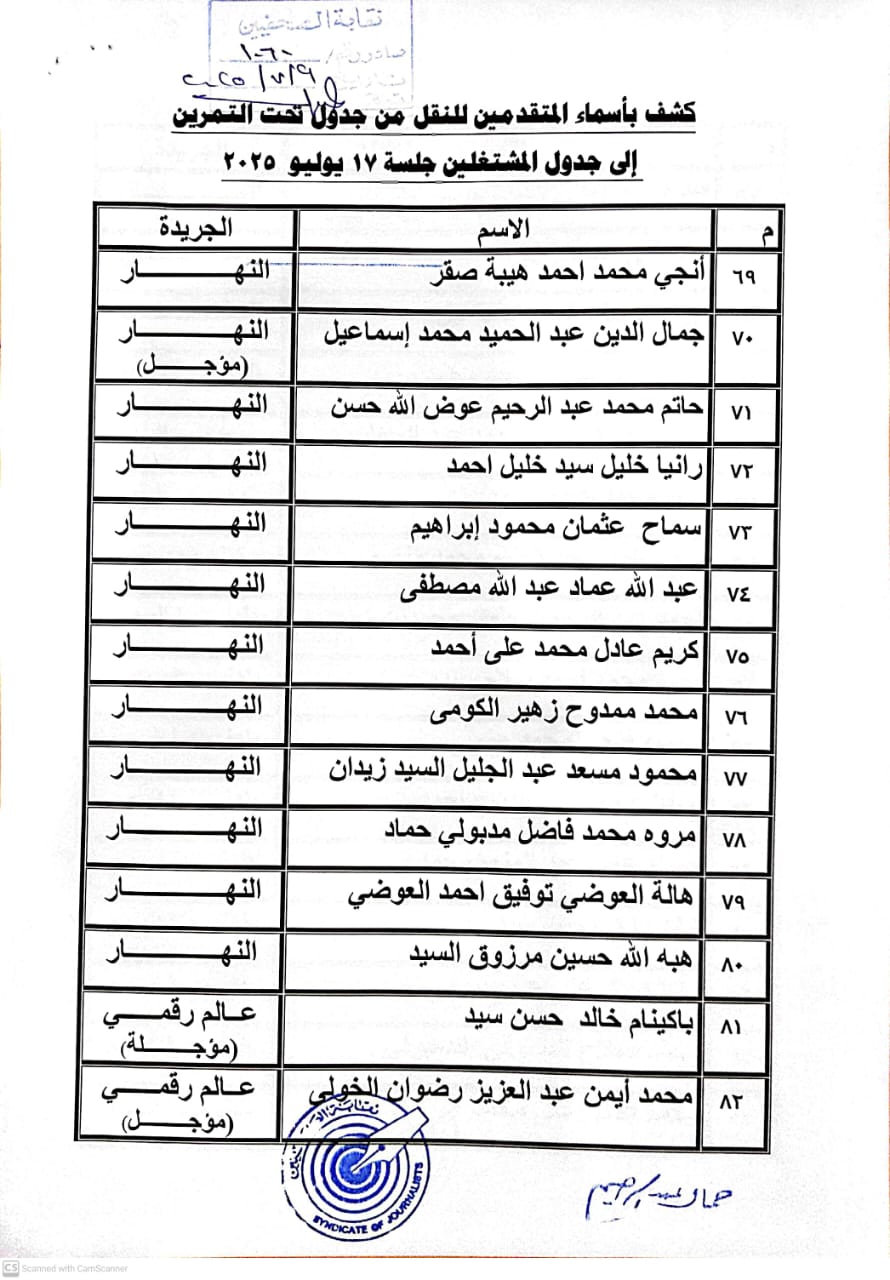 نقابة الصحفيين
صادر رقم / ١٠٦٠
٢٠٢٥/٧/٩
كشف بأسماء المتقدمين للنقل من جدول تحت التمرين
إلى جدول المشتغلين جلسة ١٧ يوليو ٢٠٢٥
م الاسم الجريدة
٦٩ أنجي محمد احمد هيبة صقر النهــــــــار
٧٠ جمال الدين عبد الحميد محمد إسماعيل النهــــــــار
(مؤجــــل)
٧١ حاتم محمد عبد الرحيم عوض الله حسن النهــــــــار
٧٢ رانيا خليل سيد خليل احمد النهــــــــار
٧٣ سماح عثمان محمود إبراهيم النهــــــــار
٧٤ عبد الله عماد عبد الله مصطفى النهــــــــار
٧٥ كريم عادل محمد على أحمد النهــــــــار
٧٦ محمد ممدوح زهير الكومى النهــــــــار
٧٧ محمود مسعد عبد الجليل السيد زيدان النهــــــــار
٧٨ مروه محمد فاضل مدبولي حماد النهــــــــار
٧٩ هالة العوضي توفيق احمد العوضي النهــــــــار
٨٠ هبه الله حسين مرزوق السيد النهــــــــار
٨١ باكينام خالد حسن سيد عـالم رقمـــي
(مؤجــــلة)
٨٢ محمد أيمن عبد العزيز رضوان الخولي عـالم رقمـــي
(مؤجــــل)
SYNDICATE OF JOURNALISTS
CS Scanned with CamScanner